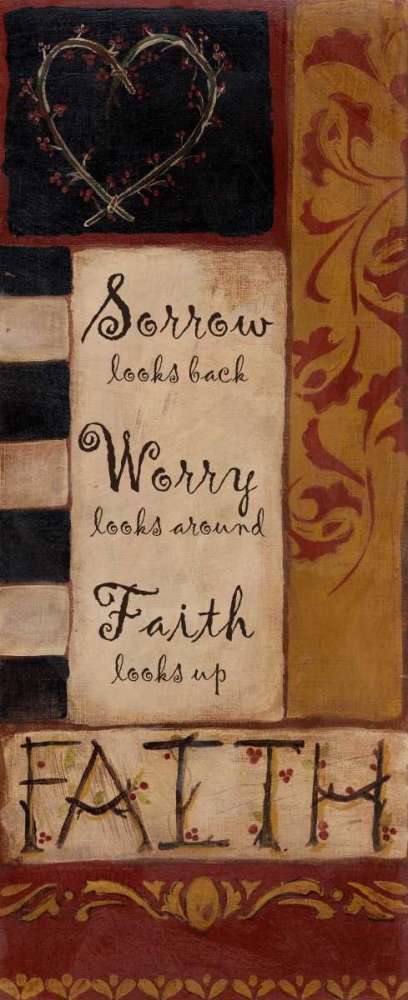 Sorrow
looks back
Worry
looks around
Faith
looks up
FAITH